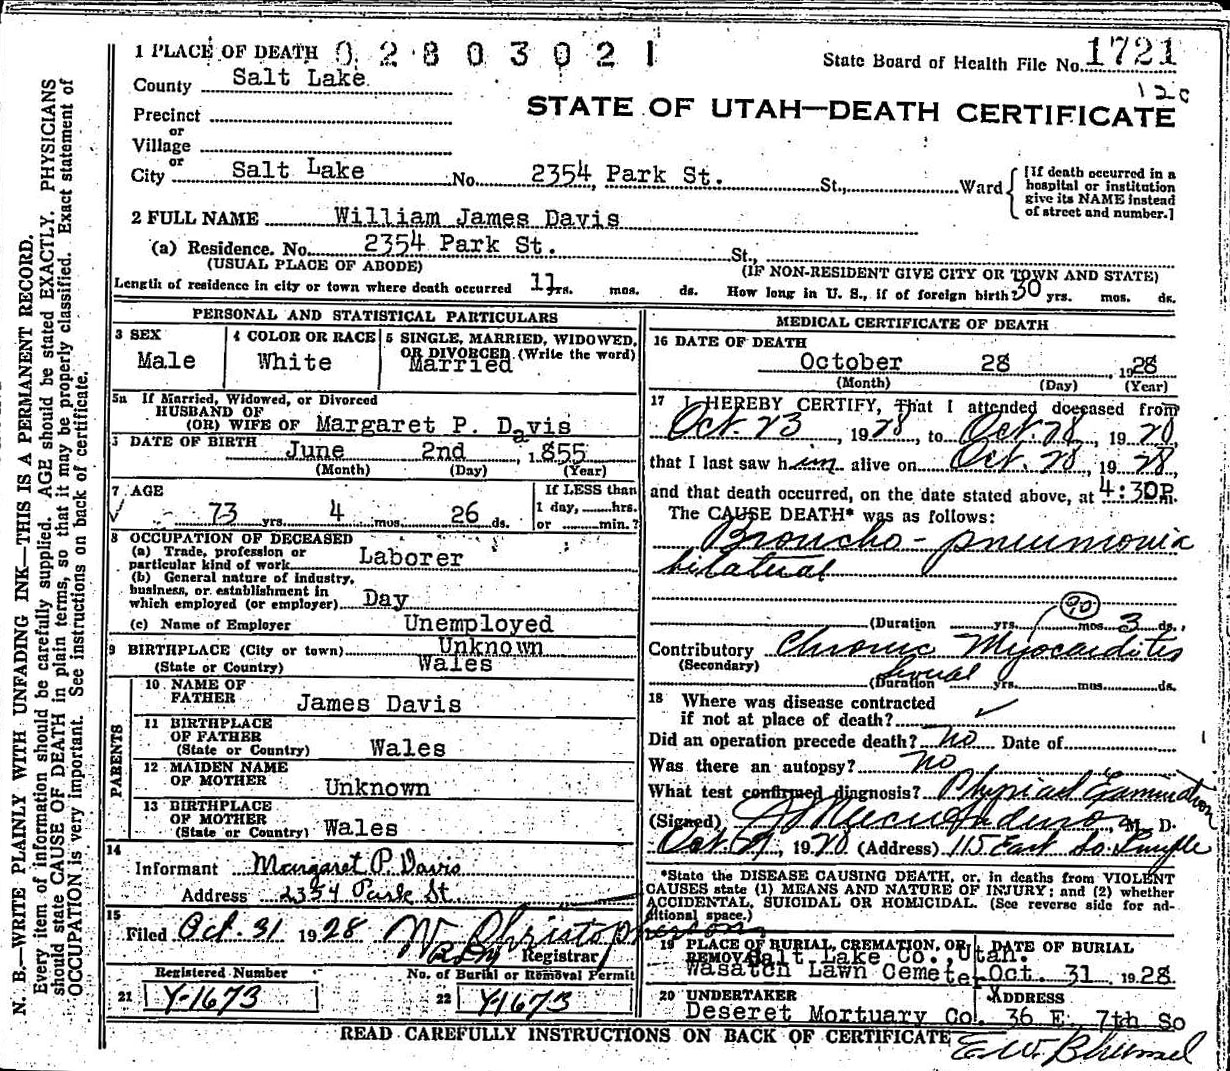 1 PLACE OF DEATH 0 2 8 0 3 0 2 1
State Board of Health File No. 1721
120
County Salt Lake
STATE OF UTAH—DEATH CERTIFICATE
Precinct
or
Village
or
City Salt Lake No. 2354 Park St. St., Ward
[If death occurred in a hospital or institution give its NAME instead of street and number.]
2 FULL NAME William James Davis
(a) Residence. No. 2354 Park St. St.,
(USUAL PLACE OF ABODE) (IF NON-RESIDENT GIVE CITY OR TOWN AND STATE)
Length of residence in city or town where death occurred 11 yrs. mos. ds. How long in U. S., if of foreign birth? 30 yrs. mos. ds.
N. B.—WRITE PLAINLY WITH UNFADING INK—THIS IS A PERMANENT RECORD.
Every item of information should be carefully supplied. AGE should be stated EXACTLY. PHYSICIANS
should state CAUSE OF DEATH in plain terms, so that it may be properly classified. Exact statement of
OCCUPATION is very important. See instructions on back of certificate.
PERSONAL AND STATISTICAL PARTICULARS
3 SEX
Male
4 COLOR OR RACE
White
5 SINGLE, MARRIED, WIDOWED,
OR DIVORCED (Write the word)
Married
5a If Married, Widowed, or Divorced
HUSBAND OF
(OR) WIFE OF Margaret P. Davis
DATE OF BIRTH
June 2nd, 1855
(Month) (Day) (Year)
7 AGE
73 yrs. 4 mos. 26 ds.
If LESS than
1 day, hrs.
or min.?
8 OCCUPATION OF DECEASED
(a) Trade, profession or
particular kind of work Laborer
(b) General nature of industry,
business, or establishment in
which employed (or employer) Day
(c) Name of Employer Unemployed
9 BIRTHPLACE (City or town) Unknown
(State or Country) Wales
PARENTS
10 NAME OF
FATHER James Davis
11 BIRTHPLACE
OF FATHER
(State or Country) Wales
12 MAIDEN NAME
OF MOTHER Unknown
13 BIRTHPLACE
OF MOTHER
(State or Country) Wales
14
Informant Margaret P. Davis
Address 2354 Park St.
15
Filed Oct. 31 1928
Registrar
Registered Number No. of Burial or Removal Permit
21 Y-1673 22 Y-1673
MEDICAL CERTIFICATE OF DEATH
16 DATE OF DEATH
October 28, 1928
(Month) (Day) (Year)
17 I HEREBY CERTIFY, That I attended deceased from
Oct. 23, 1928, to Oct. 28, 1928,
that I last saw him alive on Oct. 28, 1928,
and that death occurred, on the date stated above, at 4:30P m.
The CAUSE DEATH* was as follows:
Broncho-pneumonia
bilateral
90
(Duration yrs. mos. 3 ds.,
Contributory Chronic Myocarditis
(Secondary)
(Duration Several yrs. mos. ds.
18 Where was disease contracted
if not at place of death?
Did an operation precede death? No Date of
Was there an autopsy? No
What test confirmed diagnosis? Physical Examination
(Signed) Anderson, M. D.
Oct 29, 1928 (Address) 115 East So. Temple
*State the DISEASE CAUSING DEATH, or, in deaths from VIOLENT
CAUSES state (1) MEANS AND NATURE OF INJURY; and (2) whether
ACCIDENTAL, SUICIDAL OR HOMICIDAL. (See reverse side for ad-
ditional space.)
19 PLACE OF BURIAL, CREMATION, OR
REMOVAL Salt Lake Co., Utah.
Wasatch Lawn Cemete
DATE OF BURIAL
Oct. 31, 1928
20 UNDERTAKER
Deseret Mortuary Co.
ADDRESS
36 E. 7th So
READ CAREFULLY INSTRUCTIONS ON BACK OF CERTIFICATE